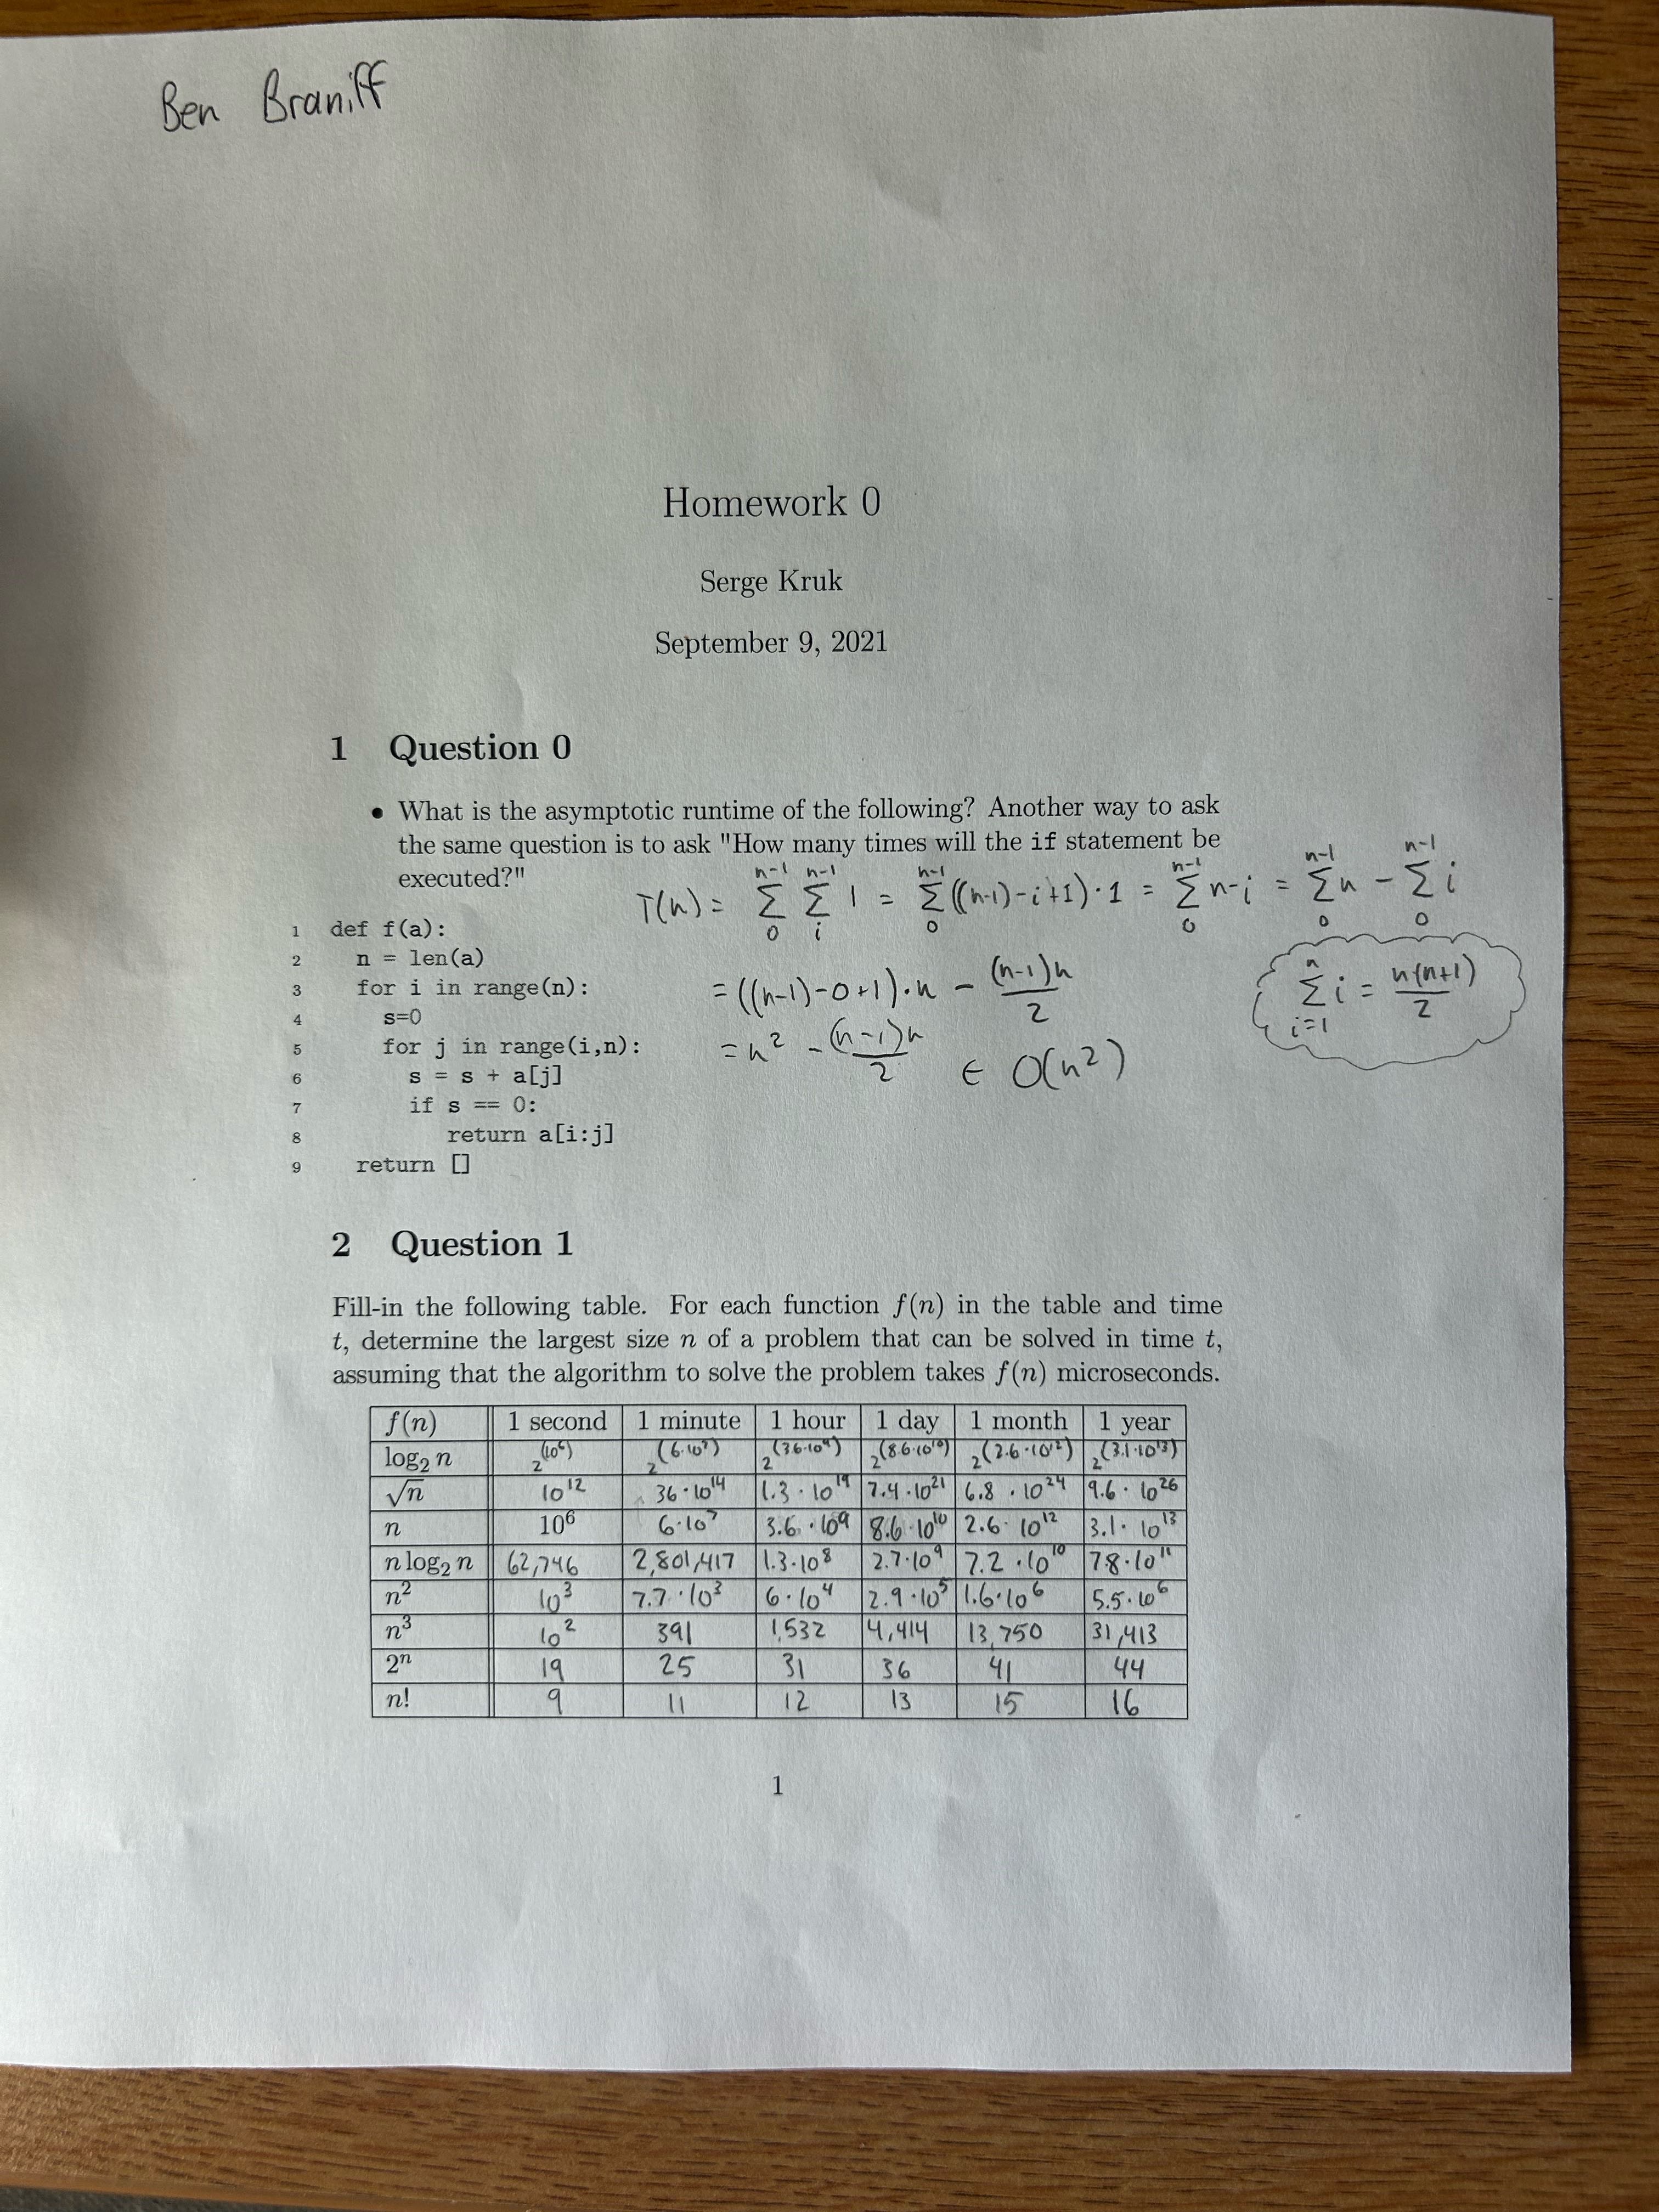 Ben Braniff
Homework 0
Serge Kruk
September 9, 2021
1 Question 0
• What is the asymptotic runtime of the following? Another way to ask
the same question is to ask "How many times will the if statement be
executed?"
T(n) = Σ_0^{n-1} Σ_i^{n-1} 1 = Σ_0^{n-1} ((n-1)-i+1)·1 = Σ_0^{n-1} n-i = Σ_0^{n-1} n - Σ_0^{n-1} i
= ((n-1)-0+1)·n - (n-1)n/2
= n² - (n-1)n/2 ∈ O(n²)
Σ_{i=1}^n i = n(n+1)/2
1 def f(a):
2 n = len(a)
3 for i in range(n):
4 s=0
5 for j in range(i,n):
6 s = s + a[j]
7 if s == 0:
8 return a[i:j]
9 return []
2 Question 1
Fill-in the following table. For each function f(n) in the table and time
t, determine the largest size n of a problem that can be solved in time t,
assuming that the algorithm to solve the problem takes f(n) microseconds.
f(n) 1 second 1 minute 1 hour 1 day 1 month 1 year
log₂ n 2^(10⁶) 2^(6·10⁷) 2^(3.6·10⁹) 2^(8.6·10¹⁰) 2^(2.6·10¹²) 2^(3.1·10¹³)
√n 10¹² 36·10¹⁴ 1.3·10¹⁹ 7.4·10²¹ 6.8·10²⁴ 9.6·10²⁶
n 10⁶ 6·10⁷ 3.6·10⁹ 8.6·10¹⁰ 2.6·10¹² 3.1·10¹³
n log₂ n 62,746 2,801,417 1.3·10⁸ 2.7·10⁹ 7.2·10¹⁰ 7.8·10¹¹
n² 10³ 7.7·10³ 6·10⁴ 2.9·10⁵ 1.6·10⁶ 5.5·10⁶
n³ 10² 391 1,532 4,414 13,750 31,413
2ⁿ 19 25 31 36 41 44
n! 9 11 12 13 15 16
1